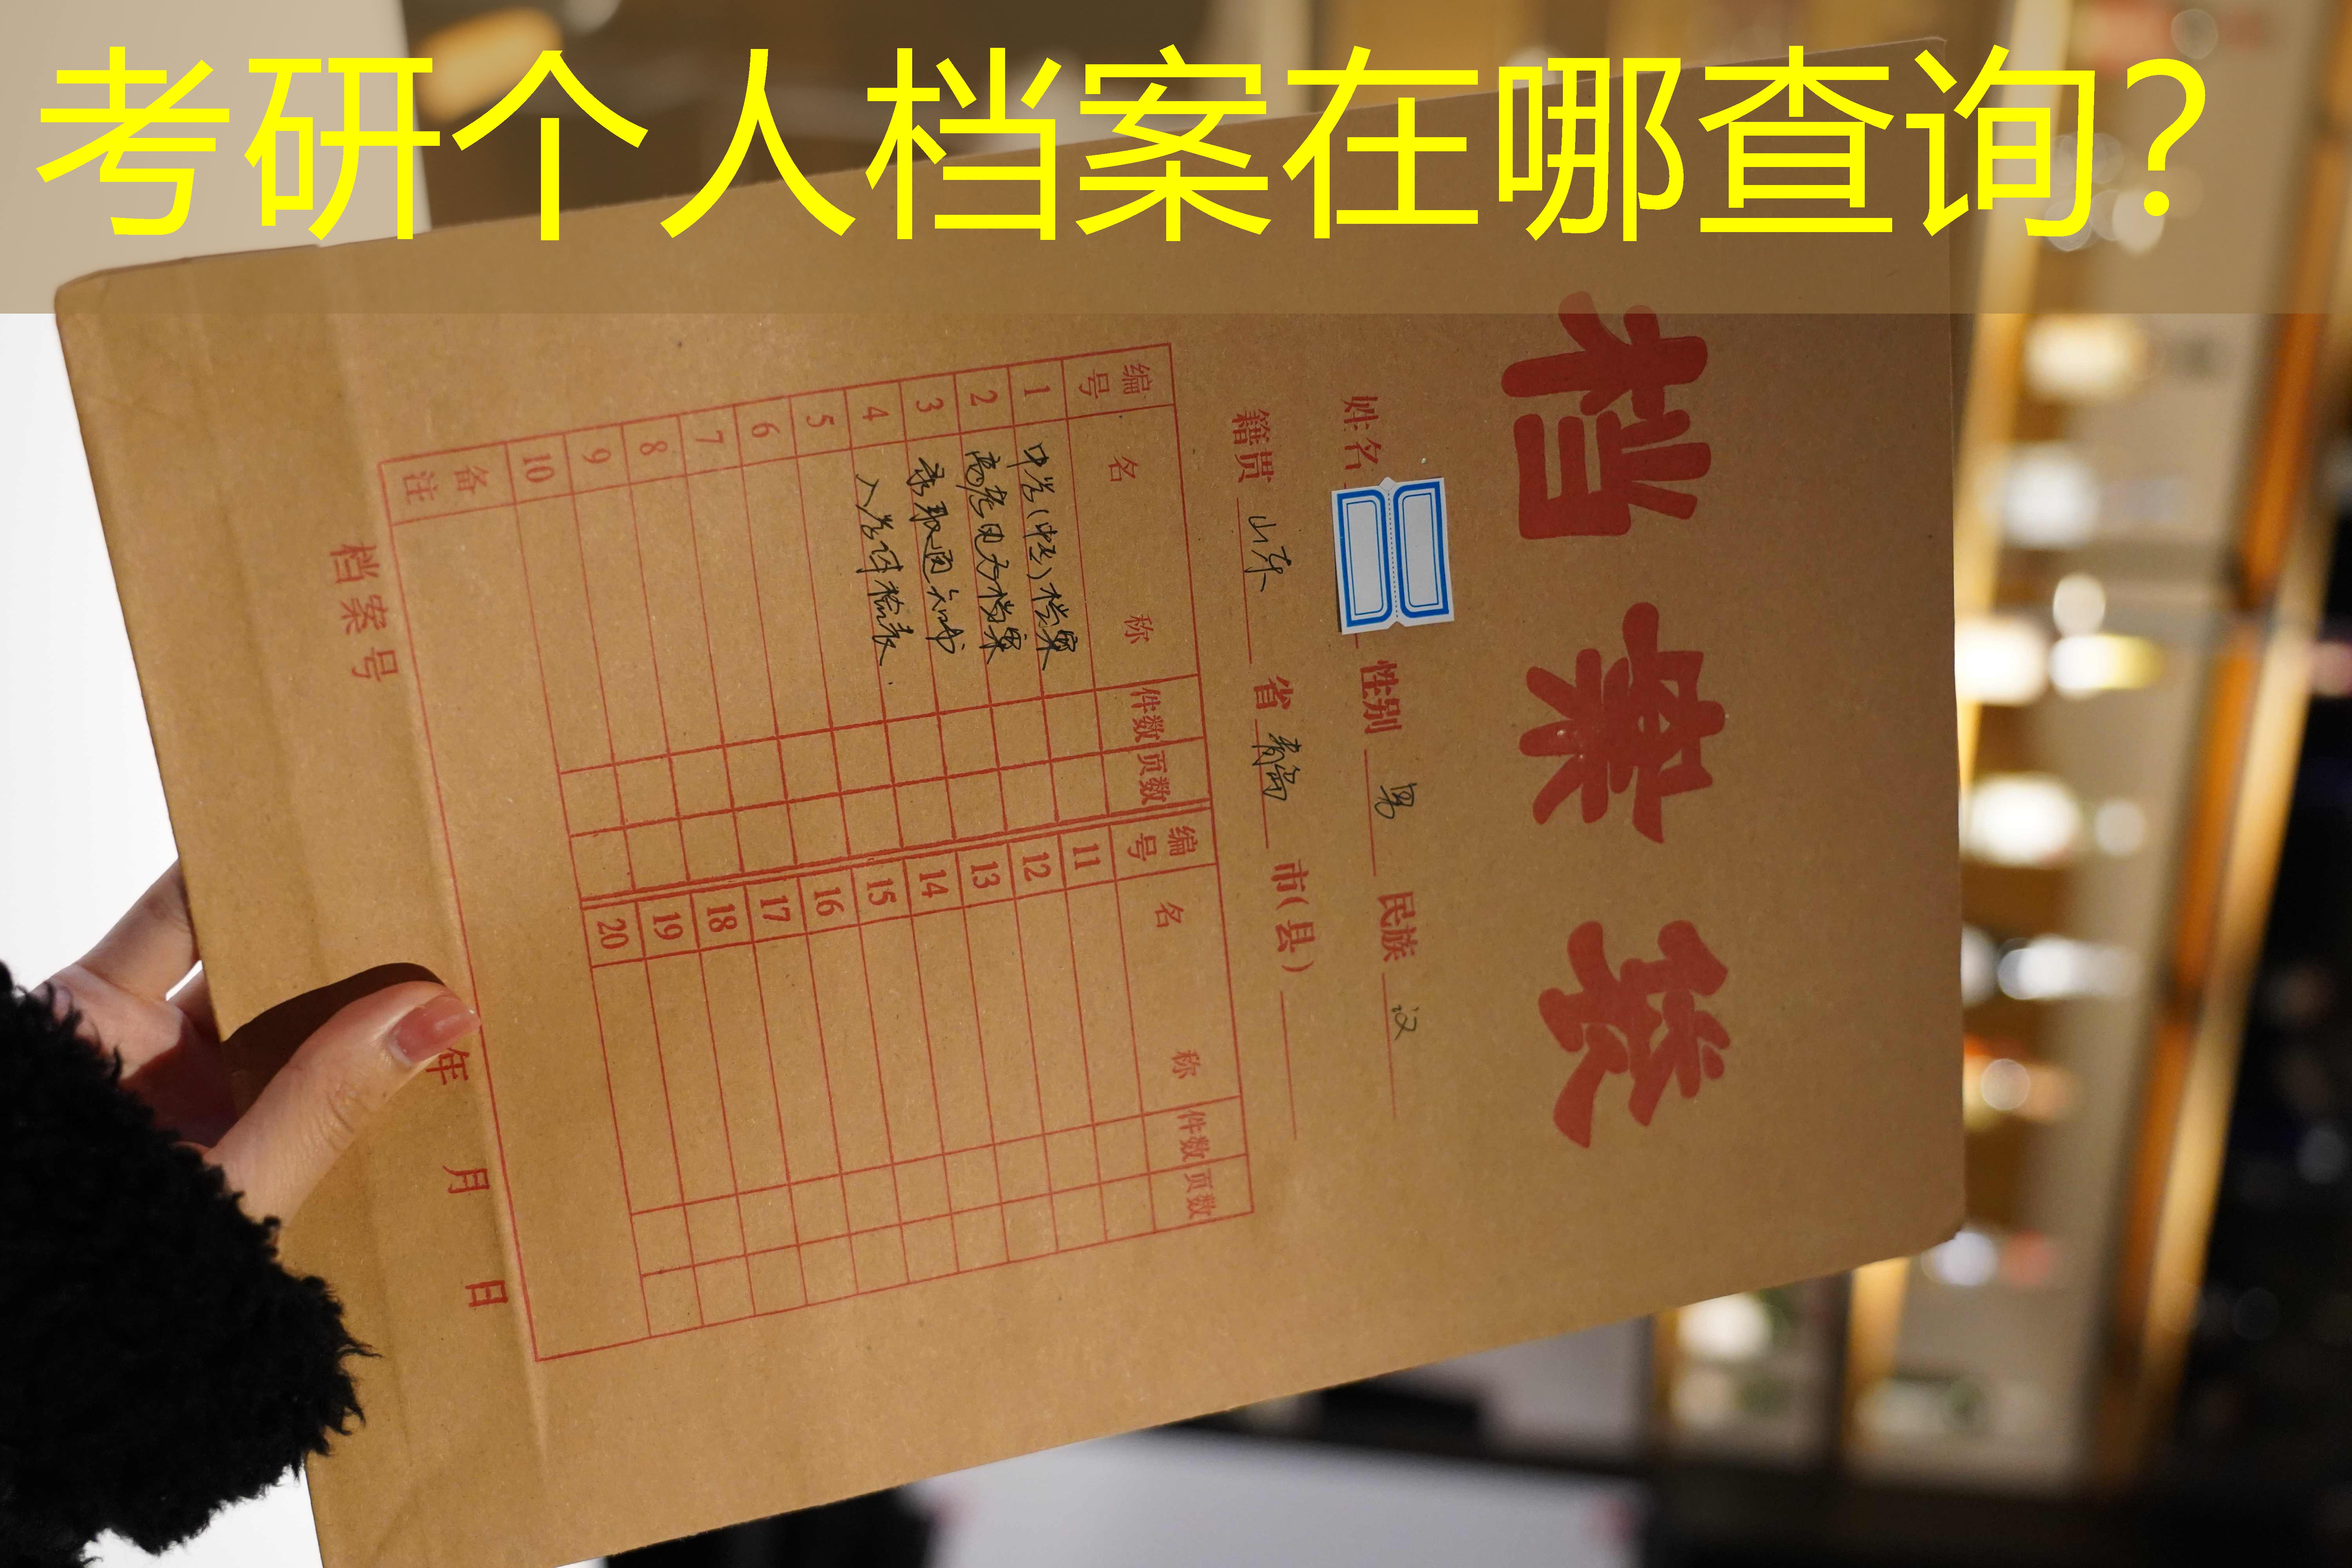 考研个人档案在哪查询?
档案袋
姓名 性别 男 民族 汉
籍贯 山东 省 青岛 市(县)
编号 名称 件数 页数 编号 名称 件数 页数
1 中学(中专)档案 11
2 高考电子档案 12
3 录取通知书 13
4 入学体检表 14
5 15
6 16
7 17
8 18
9 19
10 20
备注
年 月 日
档案号